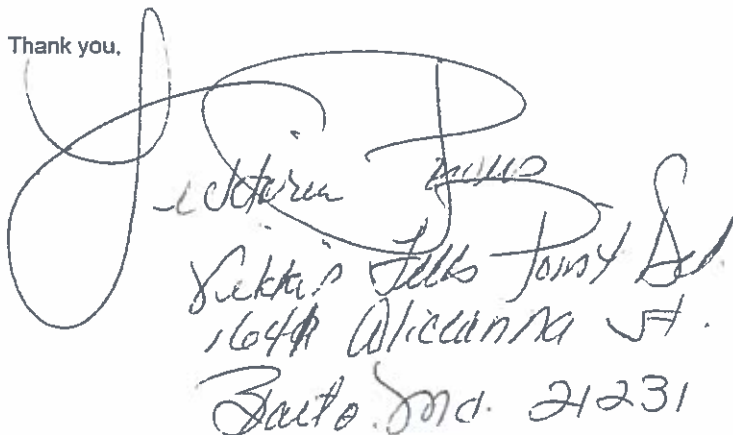 Thank you,
Vikki's Fells Point Deli
1641 Aliceanna St.
Balto. Md. 21231